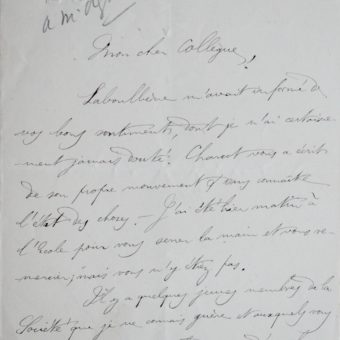 a Mr
Mon cher Collègue,
Laboulbène m'avait informé de
vos bons sentiments, dont je n'ai certaine-
ment jamais douté. Charcot vous a écrit
de son propre mouvement & sans connaître
l'état des choses. — J'ai été hier matin à
l'Ecole pour vous serrer la main et vous re-
mercier; mais vous n'y étiez pas.
Il y a quelques jeunes membres de la
Société que je ne connais guère et auxquels vous